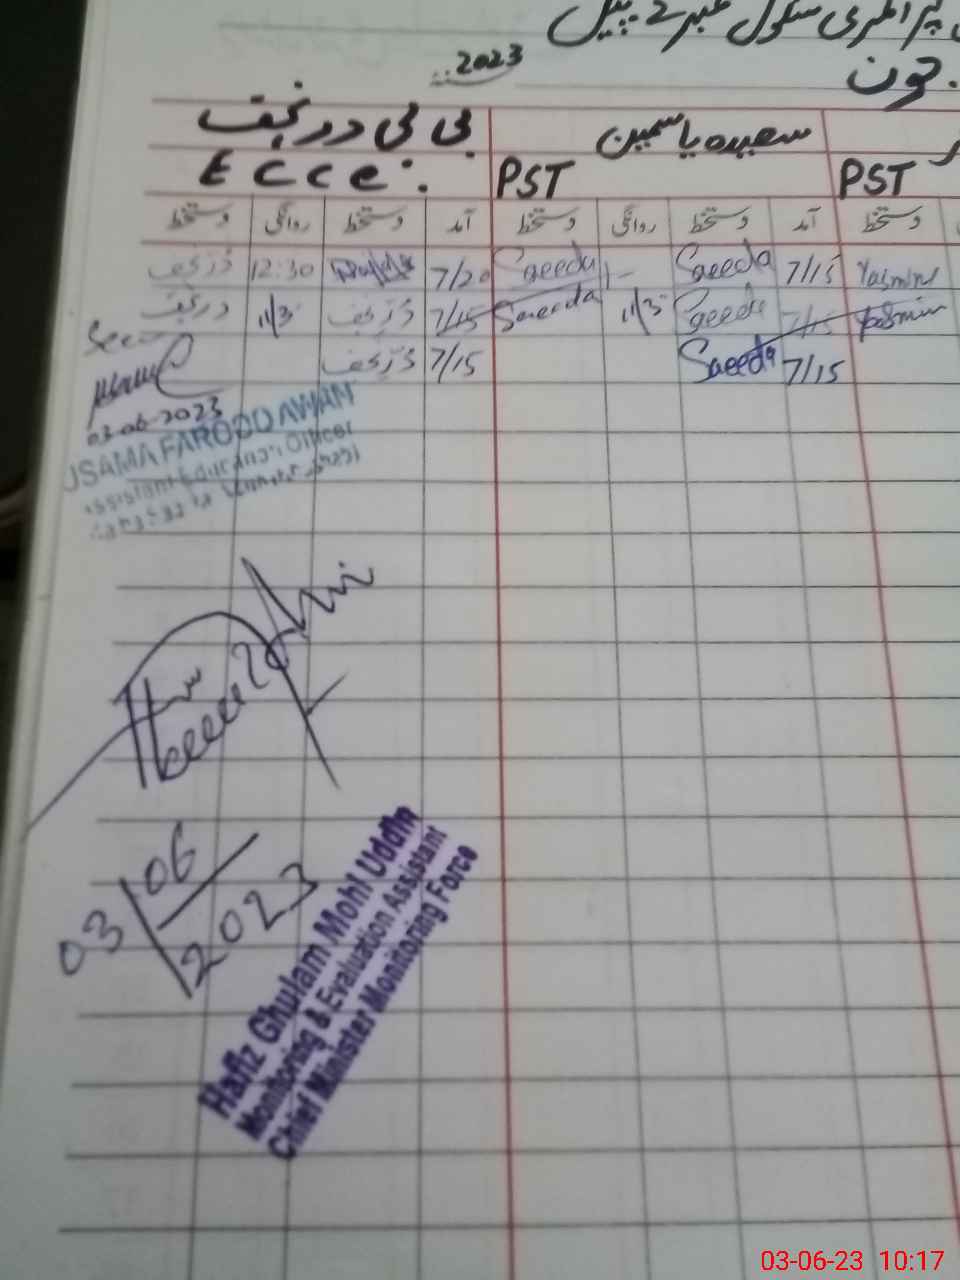 پرائمری سکول
جون 2023
سعیدہ یاسمین بی بی در نجف
PST PST Ecce.
دستخط آمد دستخط روانگی دستخط آمد دستخط روانگی دستخط
Yasmin 7/15 Saeeda Saeeda 7/20 12:30 در نجف
Yasmin 7/15 Saeeda 11/30 Saeeda 7/15 در نجف 11/30 در نجف
7/15 Saeeda 7/15 در نجف
Seen
03-06-2023
USAMA FAROOQ AWAN
Assistant Education Officer
03/06/2023
Hafiz Ghulam Mohi Uddin
Monitoring & Evaluation Assistant
Chief Minister Monitoring Force
03-06-23 10:17